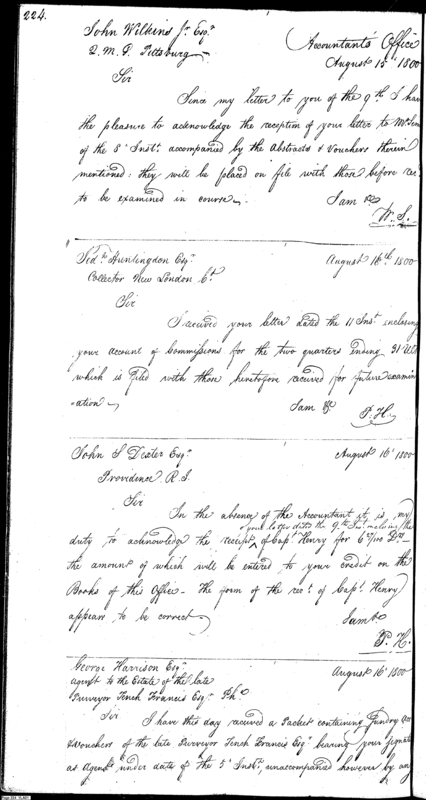 224.
John Wilkins Jr. Esqr.
Q. M. G. Pittsburg
Accountants Office
August 15th 1800
Sir
Since my letter to you of the 9th I have
the pleasure to acknowledge the reception of your letter to Mr
of the 8 Inst. accompanied by the Abstracts & Vouchers therein
mentioned: they will be placed on file with those before rec
to be examined in course.
I am &c
W. S.
Jedh. Huntingdon Esqr.
August 16th 1800
Collector New London Ct.
Sir
I received your letter dated the 11 Inst. inclosing
your account of Commissions for the two quarters Ending 31 Ult
which is filed with those heretofore received for future examin
=ation
I am &c
P. H.
John S Dexter Esqr.
August 16 1800
Providence R. I.
Sir
In the absence of the Accountant it is my
your letter dated the 9th Inst. inclosing the
duty to acknowledge the receipt of Capt. Henry for 6 /100 Drs.
the amount of which will be entered to your credit on the
Books of this Office - The form of the rect. of Capt. Henry
appears to be correct
I am &
P. H.
George Harrison Esqr.
August 16 1800
agent to the Estate of the late
Purveyor Tench Francis Esqr. Pha
Sir
I have this day received a Packet containing Sundry
Vouchers of the late Purveyor Tench Francis Esqr. bearing your signat
as Agent under date of the 5 Inst., unaccompanied however by any